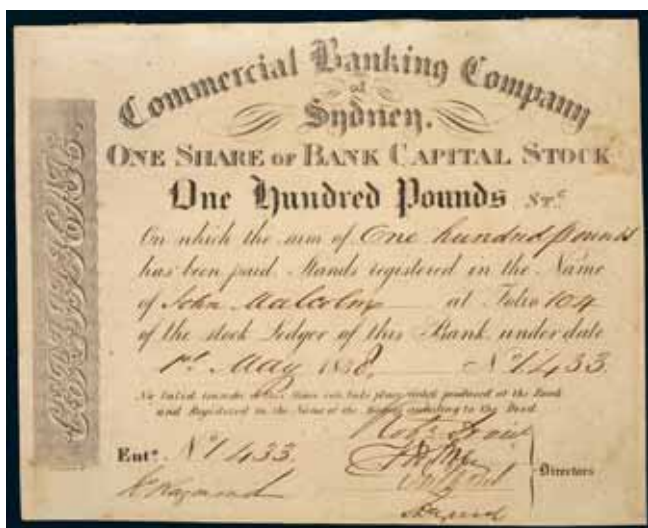 Commercial Banking Company
of
Sydney.
ONE SHARE OF BANK CAPITAL STOCK
One Hundred Pounds St.g
On which the sum of One hundred pounds
has been paid. Stands registered in the Name
of John Malcolm at Folio 104
of the stock Ledger of this Bank under date
1st. May 1838. No. 1433.
produced at the Bank
and Registered in the Name of the according to the Deed.
Entd. No. 1433.
Directors